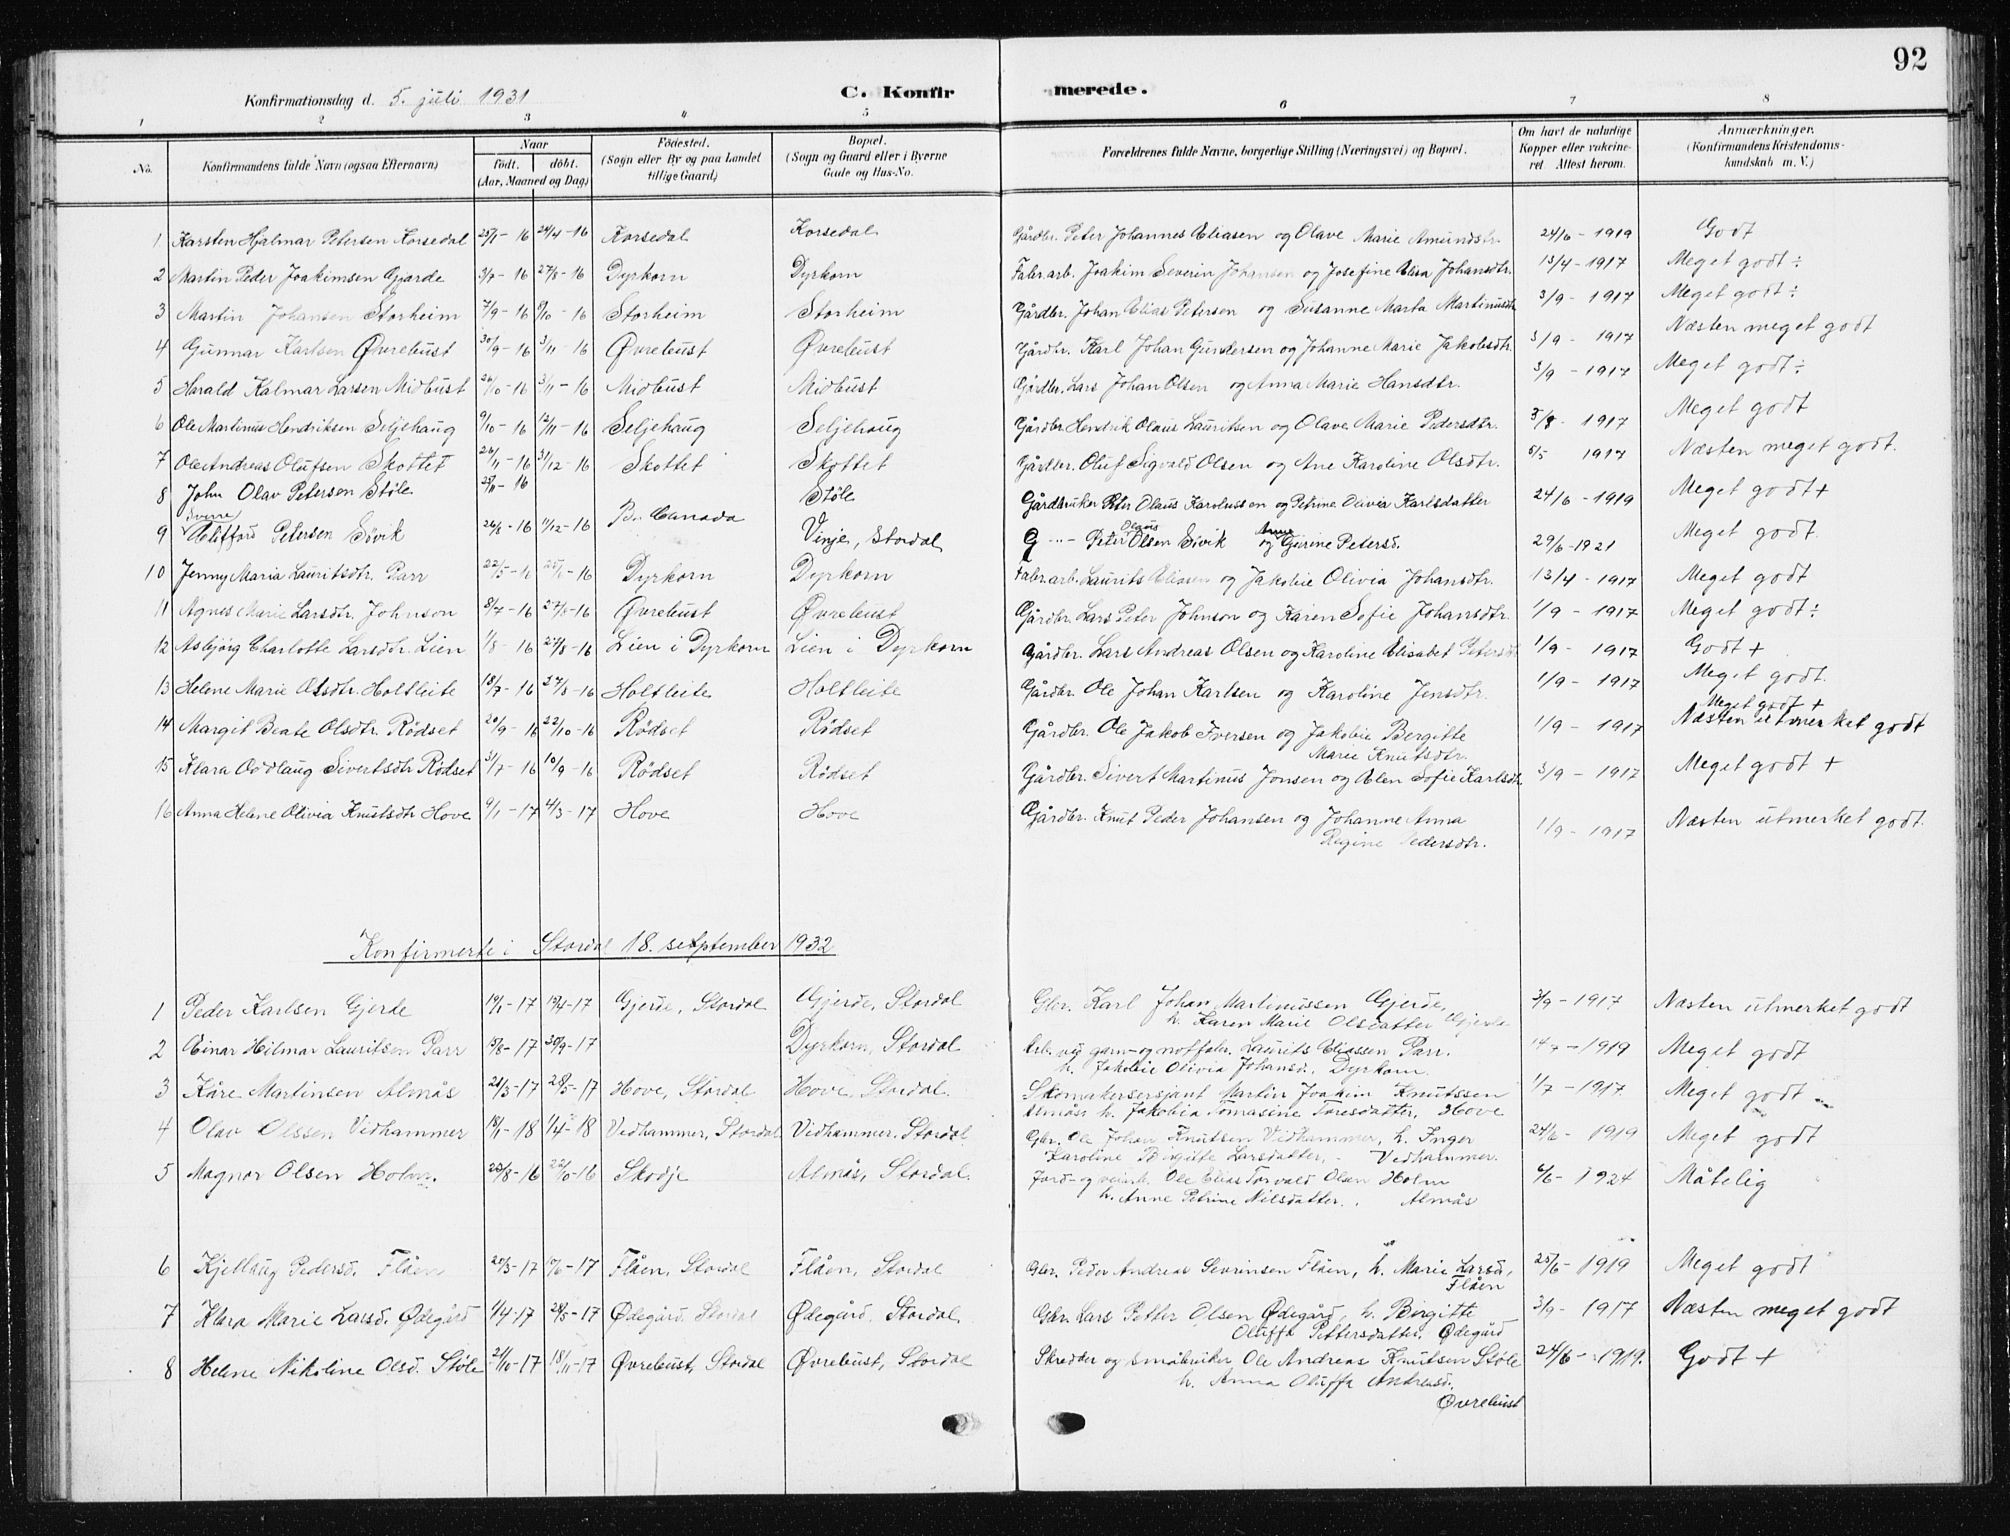 92
Konfirmationsdag d. 5. juli 1931 C. Konfirmerede.
1 2 3 4 5 6 7 8
No. Konfirmandens fulde Navn (ogsaa Efternavn) Naar født. døbt. (Aar, Maaned og Dag) Fødested. (Sogn eller By og paa Landet tillige Gaard) Bopæl. (Sogn og Gaard eller i Byerne Gade og Hus-No. Forældrenes fulde Navne, borgerlige Stilling (Næringsvei) og Bopæl. Om havt de naturlige Kopper eller vakcineret. Attest herom. Anmærkninger. (Konfirmandens Kristendomskundskab m. V.)
1 Karsten Hjalmar Petersen Korsedal 25/1-16 24/4-16 Korsedal Korsedal Gårdbr. Peter Johannes Eliasen og Olave Marie Amundsdtr. 24/6-1919 Godt
2 Martin Peder Joakimsen Gjærde 3/7-16 27/8-16 Dyrkorn Dyrkorn Fabr.arb. Joakim Severin Johansen og Josefine Elisa Johansdtr. 13/4-1917 Meget godt÷
3 Martin Johansen Storheim 7/9-16 8/10-16 Storheim Storheim Gårdbr. Johan Elias Petersen og Susanne Marta Martinusdtr 3/9-1917 Meget godt÷
4 Gunnar Karlsen Øvrebust 30/9-16 3/11-16 Øvrebust Øvrebust Gårdbr. Karl Johan Gundersen og Johanne Marie Jakobsdtr. 3/9-1917 Næsten meget godt
5 Harald Kalmar Larsen Midbust 26/10-16 3/11-16 Midbust Midbust Gårdbr. Lars Johan Olsen og Anna Marie Hansdtr. 3/9-1917 Meget godt÷
6 Ole Martinus Hendriksen Seljehaug 9/10-16 12/11-16 Seljehaug Seljehaug Gårdbr. Hendrik Olaus Lauritsen og Olave Marie Pedersdtr. 5/8-1917 Meget godt
7 Ole Andreas Olufsen Skottet 26/11-16 31/12-16 Skottet Skottet Gårdbr. Oluf Sigvald Olsen og Ane Karoline Olsdtr. 5/5 1917 Næsten meget godt.
8 John Olav Petersen Støle 28/11-16 Støle Gårdbruker Peter Olaus Karolussen og Petrine Olivia Karlsdatter 24/6-1919 Meget godt+
9 Sverre Clifford Petersen Søvik 26/8-16 11/12-16 Canada Vinje, Stordal G -"- Peter Olaus Olsen Sivik og Anne Gurine Petersd. 29/6-1921 Meget godt.
10 Jenny Maria Lauritsdtr. Parr 22/5-16 25/6-16 Dyrkorn Dyrkorn Fabr.arb. Laurits Eliasen og Jakobie Olivia Johansdtr. 13/4-1917 Meget godt
11 Agnes Marie Larsdtr. Johnson 8/7-16 27/8-16 Øvrebust Øvrebust Gårdbr. Lars Peter Johnson og Karen Sofie Johansdtr. 1/9-1917 Meget godt÷
12 Asbjørg Charlotte Larsdtr. Lien 1/8-16 27/8-16 Lien i Dyrkorn Lien i Dyrkorn Gårdbr. Lars Andreas Olsen og Karoline Elisabet Petersdtr 1/9-1917 Godt +
13 Helene Marie Olsdtr. Holtleite 18/7-16 27/8-16 Holtleite Holtleite Gårdbr. Ole Johan Karlsen og Karoline Jensdtr. 1/9-1917 Meget godt.
14 Margit Beate Olsdtr. Rödset 20/9-16 22/10-16 Rödset Rödset Gårdbr. Ole Jakob Iversen og Jakobie Bergitte Marie Knutsdtr. 1/9-1917 Meget godt + Næsten utmerket godt
15 Klara Oddlaug Sivertsdtr. Rödset 31/7-16 10/9-16 Rödset Rödset Gårdbr. Sivert Martinus Jonsen og Elen Sofie Karlsdtr 3/9-1917 Meget godt +
16 Anna Helene Olivia Knutsdtr Hove 9/1-17 4/3-17 Hove Hove Gårdbr. Knut Peder Johansen og Johanne Anna Regine Pedersdtr. 1/9-1917 Næsten utmerket godt.
Konfirmerte i Stordal 18. september 1932
1 Peder Karlsen Gjerde 19/1-17 Gjerde, Stordal Gjerde, Stordal Gbr. Karl Johan Martinussen Gjerde, h. Karen Marie Olsdatter Gjerde 3/9-1917 Næsten utmerket godt
2 Einar Hilmar Lauritsen Parr 15/8-17 30/9-17 Dyrkorn, Stordal Arb. ved garn- og notfabr. Laurits Eliassen Parr. h. Jakobie Olivia Johansd., Dyrkorn. 1919 Meget godt
3 Kåre Martinsen Almås 21/3-17 28/5-17 Hove, Stordal Hove, Stordal. Skomakersersjant Martin Joakim Knutssen Almås h. Jakobia Tomasine Toresdatter, Hove 1/7-1917 Meget godt
4 Olav Olssen Vidhammer 18/1-18 1/4-18 Vidhammer, Stordal Vidhammer, Stordal Gbr. Ole Johan Knutsen Vidhammer, h. Inger Karoline Birgitte Larsdatter, Vidhammer. 24/6-1919 Meget godt
5 Magnar Olsen Holm. 23/8-16 22/10-16 Skodje Almås, Stordal. Jord- og veiarb. Ole Elias Torvald Olsen Holm h. Anne Petrine Nilsdatter. Almås 6/6-1924 Måtelig
6 Kjellaug Pedersd. Flåen 25/3-17 17/6-17 Flåen, Stordal Flåen, Stordal Gbr. Peder Andreas Sevrinsen Flåen, h. Marie Larsd., Flåen 25/6-1919 Meget godt
7 Klara Marie Larsd. Ødegård 1/4-17 28/5-17 Ødegård, Stordal Ødegård, Stordal. Gbr. Lars Petter Olsen Ødegård, h. Birgitte Oluffa Pettersdatter, Ødegård 3/9-1917 Næsten meget godt
8 Helene Nikoline Olsd. Støle 21/10-17 18/11-17 Øvrebust, Stordal Øvrebust, Stordal Skredder og småbruker Ole Andreas Knutsen Støle h. Anna Oluffa Andreasd., Øvrebust 24/6-1919. Godt +